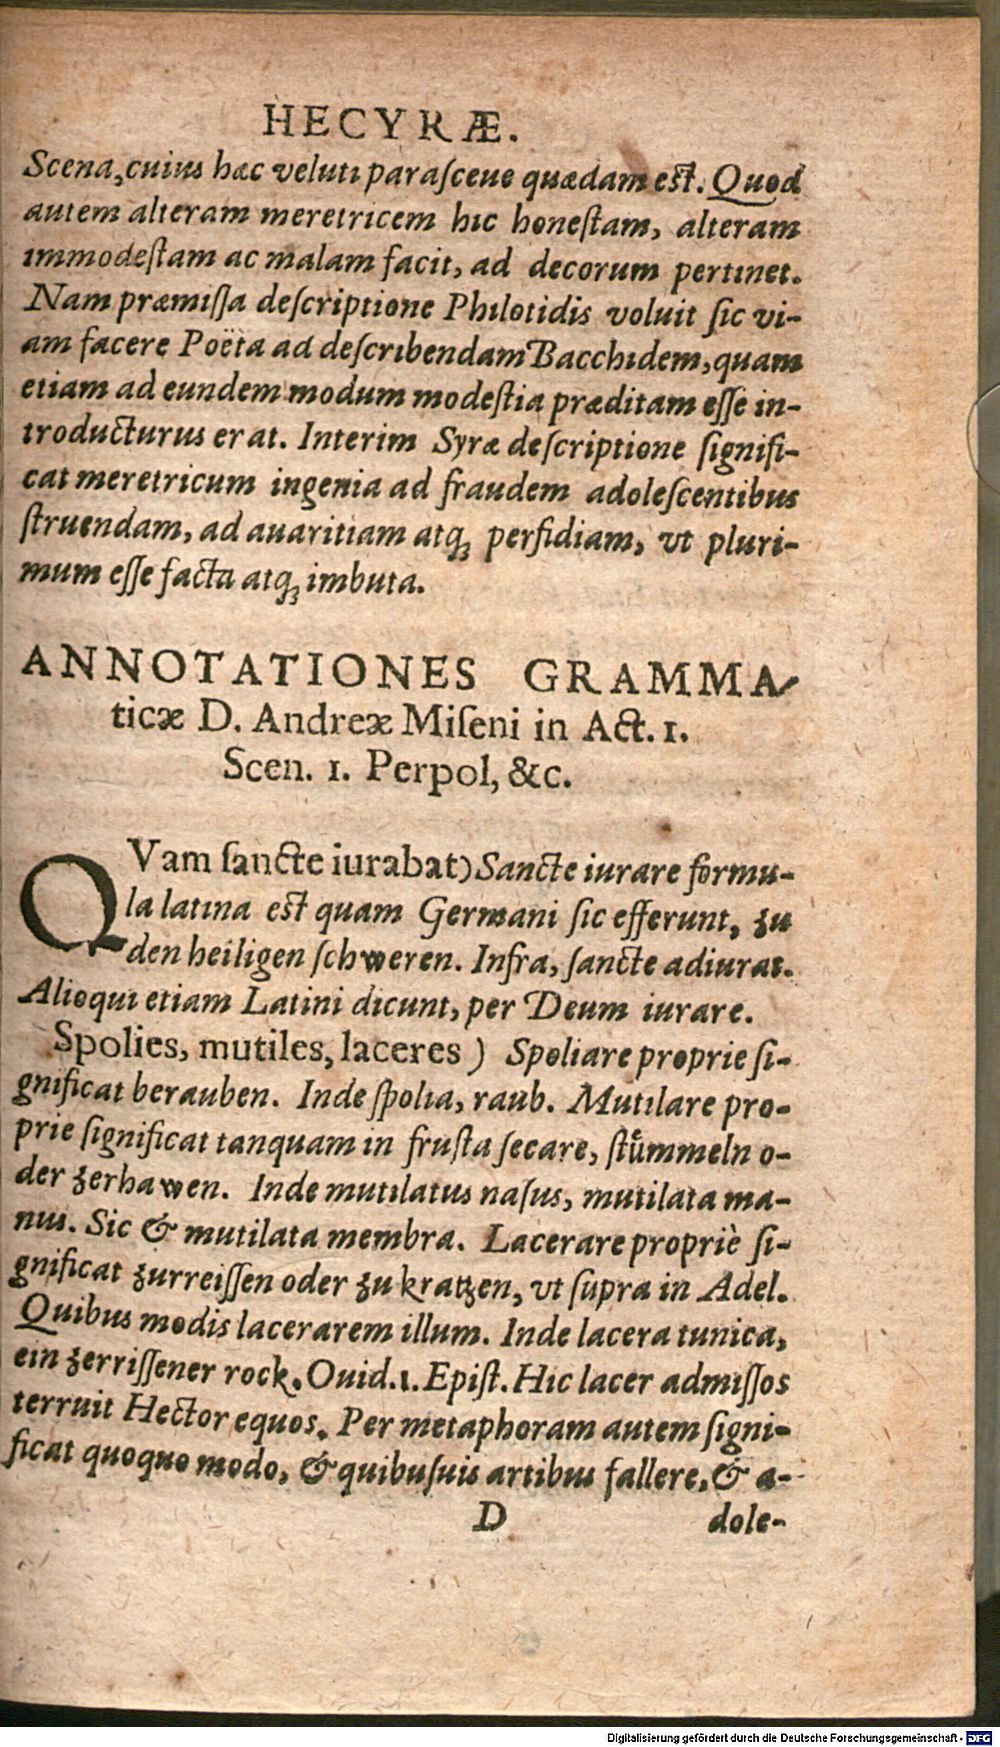 HECYRÆ.
Scena, cuius hæc veluti paraſceue quædam eſt. Quod
autem alteram meretricem hic honeſtam, alteram
immodeſtam ac malam facit, ad decorum pertinet.
Nam præmiſſa deſcriptione Philotidis voluit ſic vi-
am facere Poëta ad deſcribendam Bacchidem, quam
etiam ad eundem modum modeſtia præditam eſſe in-
troducturus erat. Interim Syræ deſcriptione ſignifi-
cat meretricum ingenia ad fraudem adoleſcentibus
ſtruendam, ad auaritiam atq; perfidiam, vt pluri-
mum eſſe facta atq; imbuta.
ANNOTATIONES GRAMMA-
ticæ D. Andreæ Miſeni in Act. 1.
Scen. 1. Perpol, &c.
QVam ſancte iurabat) Sancte iurare formu-
la latina eſt quam Germani ſic efferunt, zu
den heiligen ſchweren. Infra, ſancte adiurat.
Alioqui etiam Latini dicunt, per Deum iurare.
Spolies, mutiles, laceres) Spoliare proprie ſi-
gnificat berauben. Inde ſpolia, raub. Mutilare pro-
prie ſignificat tanquam in fruſta ſecare, ſtuͤmmeln o-
der zerhawen. Inde mutilatus naſus, mutilata ma-
nus. Sic & mutilata membra. Lacerare propriè ſi-
gnificat zurreiſſen oder zu kratzen, vt ſupra in Adel.
Quibus modis lacerarem illum. Inde lacera tunica,
ein zerriſſener rock. Ouid. 1. Epiſt. Hic lacer admiſſos
terruit Hector equos. Per metaphoram autem ſigni-
ficat quoquo modo, & quibuſuis artibus fallere, & a-
D
dole-
Digitalisierung gefördert durch die Deutsche Forschungsgemeinschaft - DFG